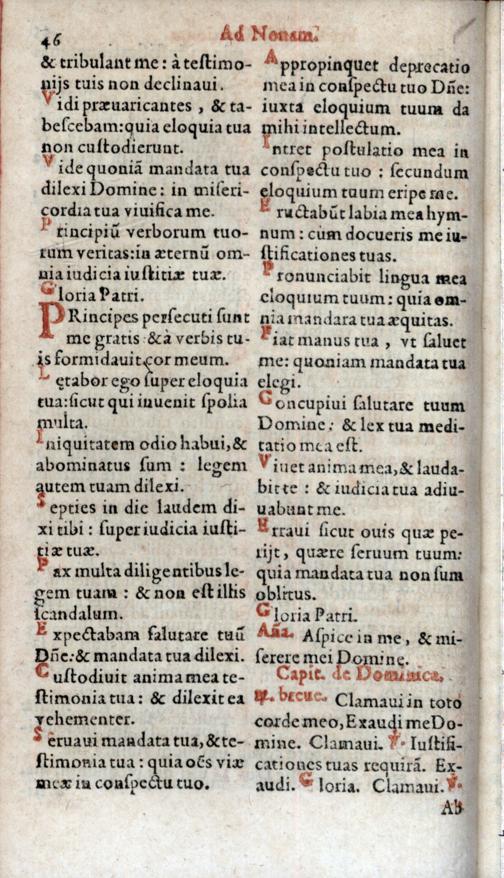 46
Ad Nonam.
& tribulant me : à testimo-
nijs tuis non declinaui.
Vidi præuaricantes , & ta-
bescebam:quia eloquia tua
non custodierunt.
Vide quoniã mandata tua
dilexi Domine : in miseri-
cordia tua viuifica me.
Principiũ verborum tuo-
rum veritas:in æternũ om-
nia iudicia iustitiæ tuæ.
Gloria Patri.
PRincipes persecuti sunt
me gratis &à verbis tu-
is formidauit cor meum.
Lętabor ego super eloquia
tua:sicut qui inuenit spolia
multa.
Iniquitatem odio habui,&
abominatus sum : legem
autem tuam dilexi.
Septies in die laudem di-
xi tibi : super iudicia iusti-
tiæ tuæ.
Pax multa diligentibus le-
gem tuam : & non est illis
scandalum.
Expectabam salutare tuũ
Dñe:& mandata tua dilexi.
Custodiuit anima mea te-
stimonia tua : & dilexit ea
vehementer.
Seruaui mandata tua,&te-
stimonia tua : quia oẽs viæ
meæ in conspectu tuo.
Appropinquet deprecatio
mea in conspectu tuo Dñe:
iuxta eloquium tuum da
mihi intellectum.
Intret postulatio mea in
conspectu tuo : secundum
eloquium tuum eripe me.
Eructabũt labia mea hym-
num : cùm docueris me iu-
stificationes tuas.
Pronunciabit lingua mea
eloquium tuum : quia om-
nia mandara tua æquitas.
Fiat manus tua , vt saluet
me: quoniam mandata tua
elegi.
Concupiui salutare tuum
Domine: & lex tua medi-
tatio mea est.
Viuet anima mea,& lauda-
bit te : & iudicia tua adiu-
uabunt me.
Erraui sicut ouis quæ pe-
rijt, quære seruum tuum:
quia mandata tua non sum
oblitus.
Gloria Patri.
Aña. Aspice in me , & mi-
serere mei Domine.
Capit. de Dominica.
℟. breue. Clamaui in toto
corde meo, Exaudi me Do-
mine. Clamaui. ℣. Iustifi-
cationes tuas requirã. Ex-
audi. Gloria. Clamaui. ℣.
Ab